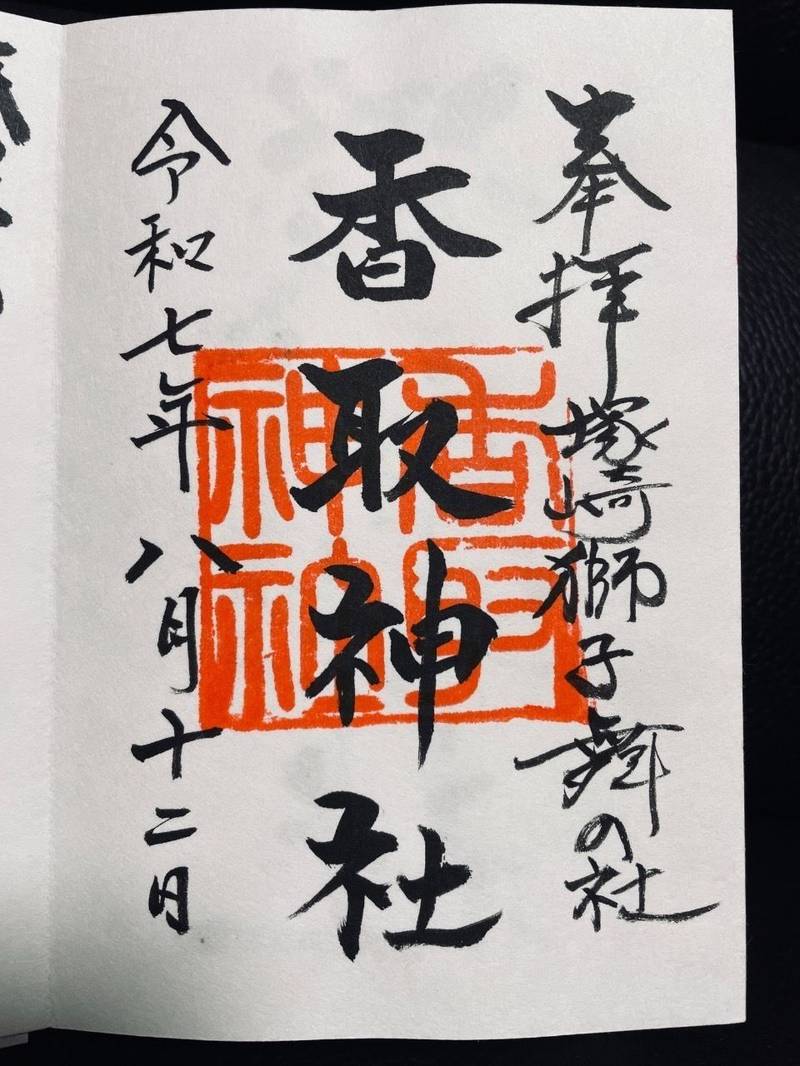 奉拝 塚崎獅子舞の社
香取神社
香取神社
令和七年八月十二日